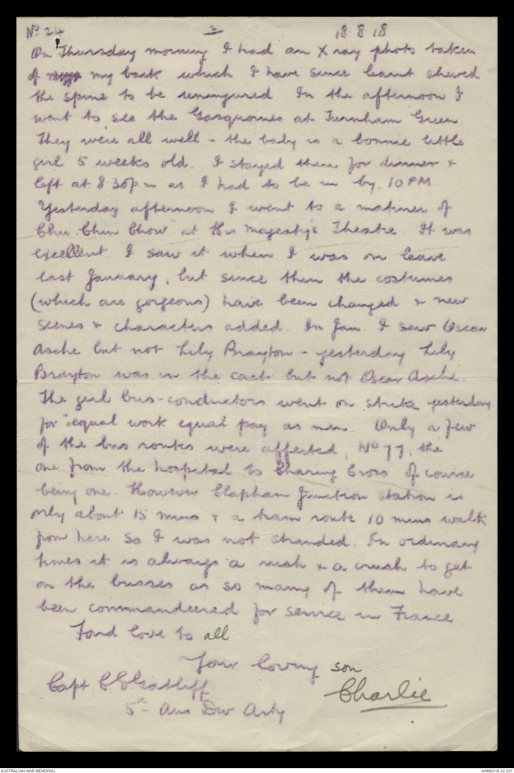 No 24 2 18 8 18
On Thursday morning I had an X ray photo taken
of my back which I have since learnt shewed
the spine to be uninjured In the afternoon I
went to see the Gasquoines at Turnham Green
They were all well - the baby is a bonnie little
girl 5 weeks old. I stayed there for dinner +
left at 8 30 p m as I had to be in by 10 PM
Yesterday afternoon I went to a matinee of
"Chu Chin Chow" at His Majesty's Theatre It was
excellent I saw it when I was on leave
last January, but since then the costumes
(which are gorgeous) have been changed + new
scenes + characters added. In Jan. I saw Oscar
Asche but not Lily Brayton - yesterday Lily
Brayton was in the cast but not Oscar Asche.
The girl bus-conductors went on strike yesterday
for "equal work equal pay as men. Only a few
of the bus routes were affected, No 77, the
one from the hospital to Charing Cross of course
being one. However Clapham Junction station is
only about 15 mins + a tram route 10 mins walk
from here so I was not stranded. In ordinary
times it is always a rush + a crush to get
on the busses as so many of them have
been commandeered for service in France
Fond love to all
Your loving son
Charlie
Capt C E Gatliff
5th Aus Div Arty
AUSTRALIAN WAR MEMORIAL